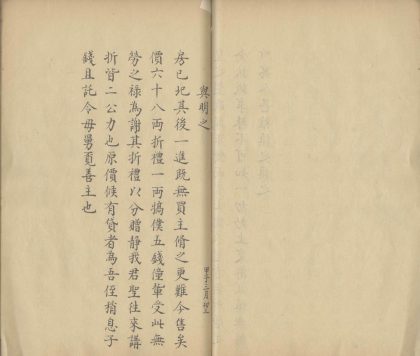 與明之
甲子二月望
房已圮其後一進既無買主脩之更難今售矣
價六十八兩折禮一兩犒僕五錢僮輩受此無
勞之祿為謝其折禮以分贈靜我君聖往來講
折皆二公力也原價候有貸者為吾侄稍息子
錢且託令母舅覓善主也